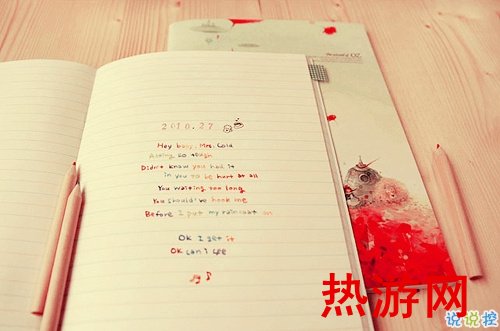 2010.27
Hey baby, Mrs. Cold
Acting so tough
Didn't know you had it
in you to be hurt at all
You waiting too long
You should've hook me
Before I put my raincoat on
Ok I get it
Ok can I see
热游网
说说控